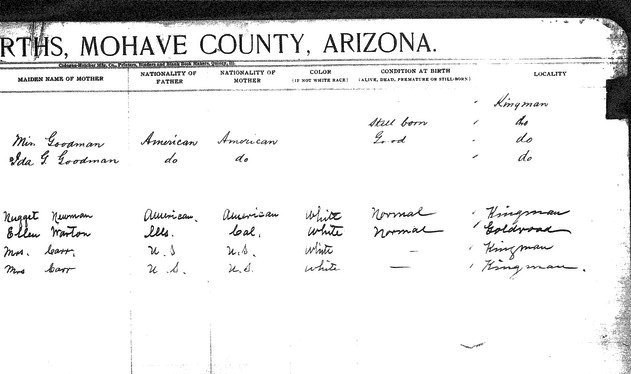 RTHS, MOHAVE COUNTY, ARIZONA.
MAIDEN NAME OF MOTHER NATIONALITY OF FATHER NATIONALITY OF MOTHER COLOR (IF NOT WHITE RACE) CONDITION AT BIRTH (ALIVE, DEAD, PREMATURE OR STILL-BORN) LOCALITY
Kingman
Still born do
Min. Goodman American American Good do
Ida G. Goodman do do do
Nugget Newman American. American White Normal Kingman
Ellen Warton Ills. Cal. White Normal Goldroad
Mrs. Carr. U.S U.S. White — Kingman
Mrs Carr U.S. U.S. White — Kingman.